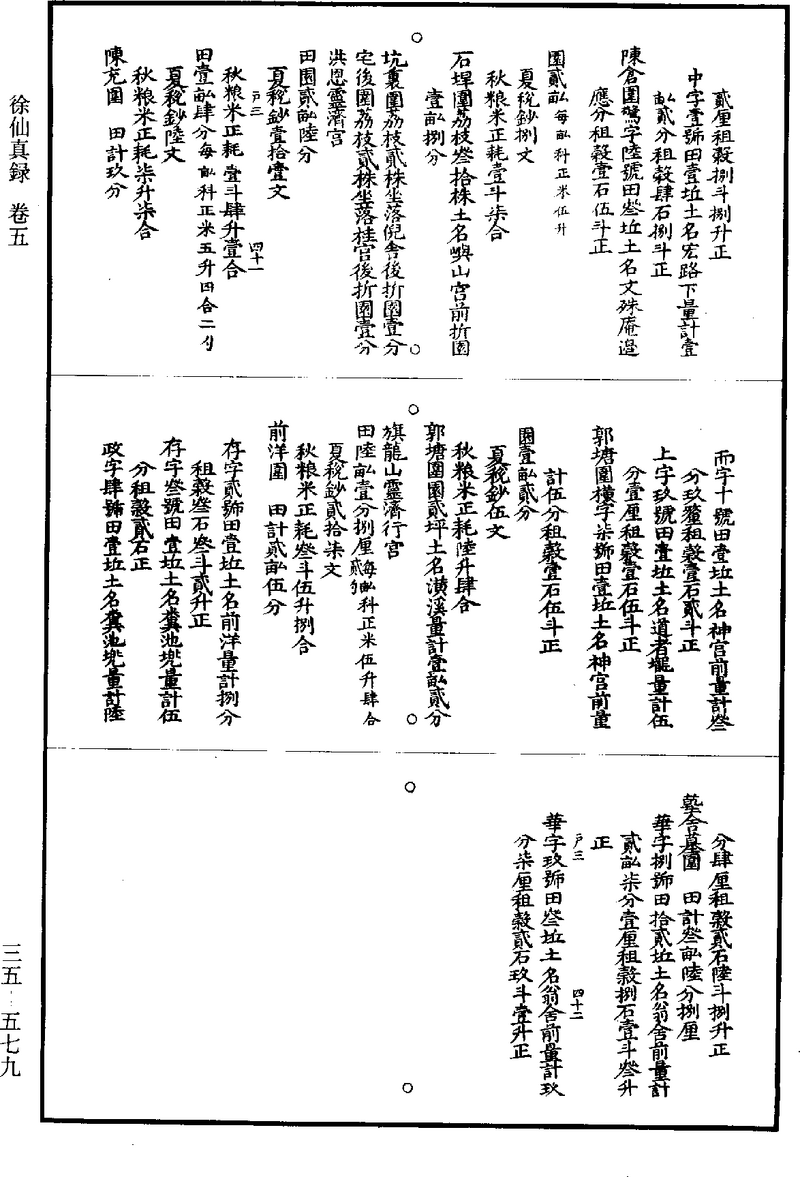 徐仙真録 卷五
三五—五七九
貳厘租穀捌斗捌升正
中字壹號田壹坵土名宏路下量計壹
畝貳分租穀肆石捌斗正
陳倉園驚字陸號田叁坵土名文殊庵邉
應分租穀壹石伍斗正
園貳畝每畝科正米伍升
夏稅鈔捌文
秋粮米正耗壹斗柒合
石埕園荔枝叁拾株土名嶼山宫前折園
壹畝捌分
坑裏園荔枝貳株坐落倪舎後折園壹分
宅後園荔枝貳株坐落桂宫後折園壹分
洪恩靈濟宫
田園貳畝陸分
夏稅鈔壹拾壹文
戸三
秋粮米正耗壹斗肆升壹合
四十一
田壹畝肆分每畝科正米五升四合二勺
夏稅鈔陸文
秋粮米正耗柒升柒合
陳充園 田計玖分
而字十號田壹坵土名神宫前量計叁
分玖釐租穀壹石貳斗正
上字玖號田壹坵土名道者壠量計伍
分壹厘租穀壹石伍斗正
郭塘園橫字柒號田壹坵土名神宫前量
計伍分租穀壹石伍斗正
園壹畝貳分
夏稅鈔伍文
秋粮米正耗陸升肆合
郭塘園園貳坪土名潢溪量計壹畝貳分
旗龍山靈濟行宫
田陸畝壹分捌厘每畝科正米伍升肆合貳勺
夏稅鈔貳拾柒文
秋粮米正耗叁斗伍升捌合
前洋園 田計貳畝伍分
存字貳號田壹坵土名前洋量計捌分
租穀叁石叁斗貳升正
存字叁號田壹坵土名糞池兠量計伍
分租穀貳石正
政字肆號田壹坵土名糞池兠量計陸
分肆厘租穀貳石陸斗捌升正
塾舎墓園 田計叁畝陸分捌厘
華字捌號田拾貳坵土名翁舎前量計
貳畝柒分壹厘租穀捌石壹斗叁升
正
戸三
四十二
華字玖號田叁坵土名翁舎前量計玖
分柒厘租穀貳石玖斗壹升正